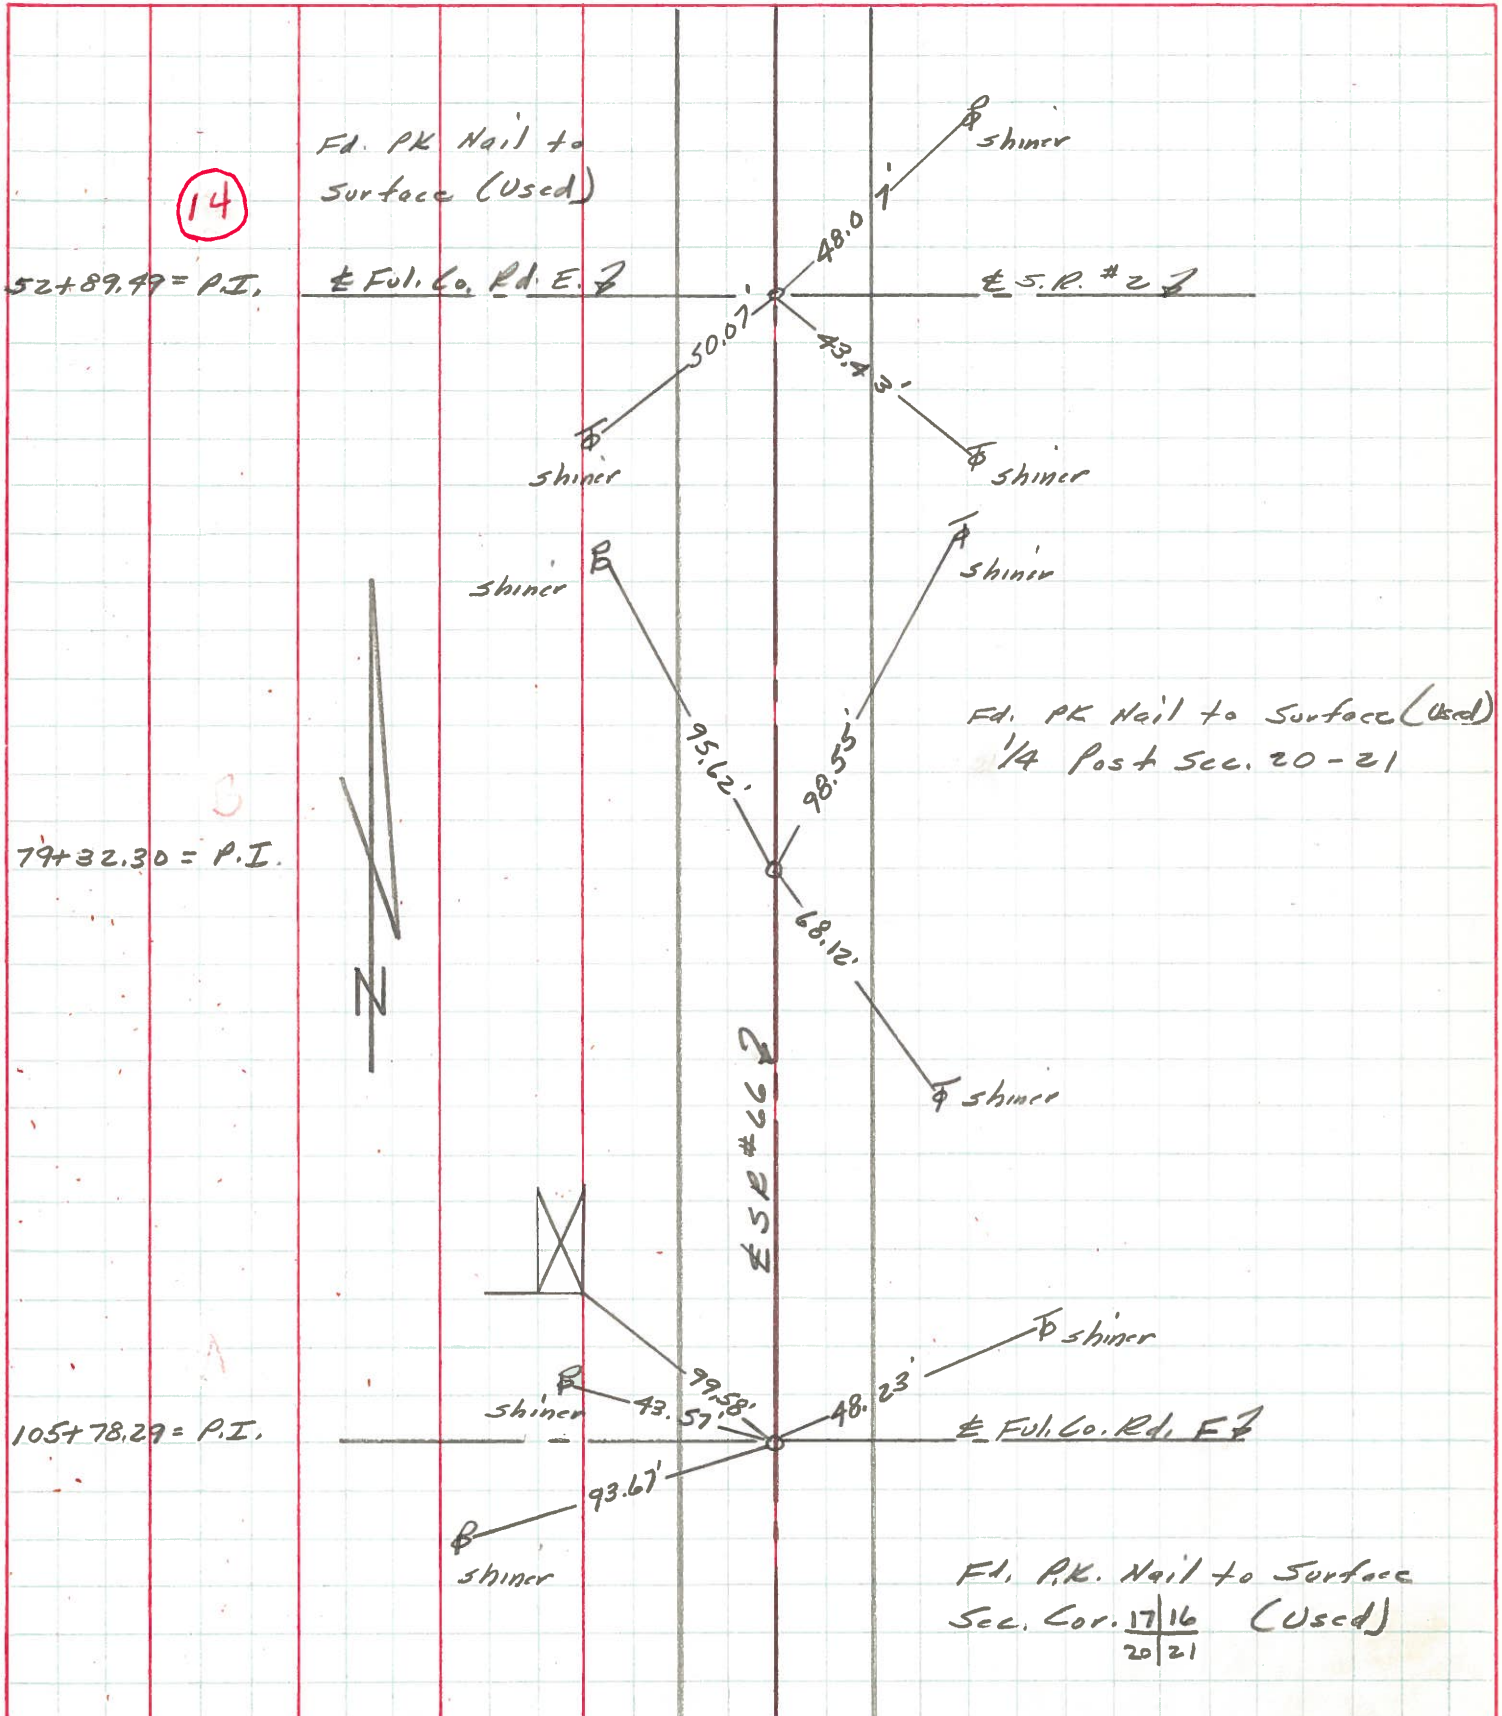 Fd. PK Nail to
Surface (Used)
14
shiner
48.01'
52+89.49 = P.I.
℄ Ful. Co. Rd. E.
℄ S.R. #2
50.07'
43.43'
shiner
shiner
shiner
shiner
95.62'
98.55'
Fd. PK Nail to Surface (Used)
1/4 Post Sec. 20-21
79+32.30 = P.I.
68.12'
N
shiner
℄ SR #66
shiner
99.58'
shiner
43.57'
48.23'
105+78.29 = P.I.
℄ Ful. Co. Rd. F
93.67'
shiner
Fd. P.K. Nail to Surface
Sec. Cor. 17|16 (Used)
20|21